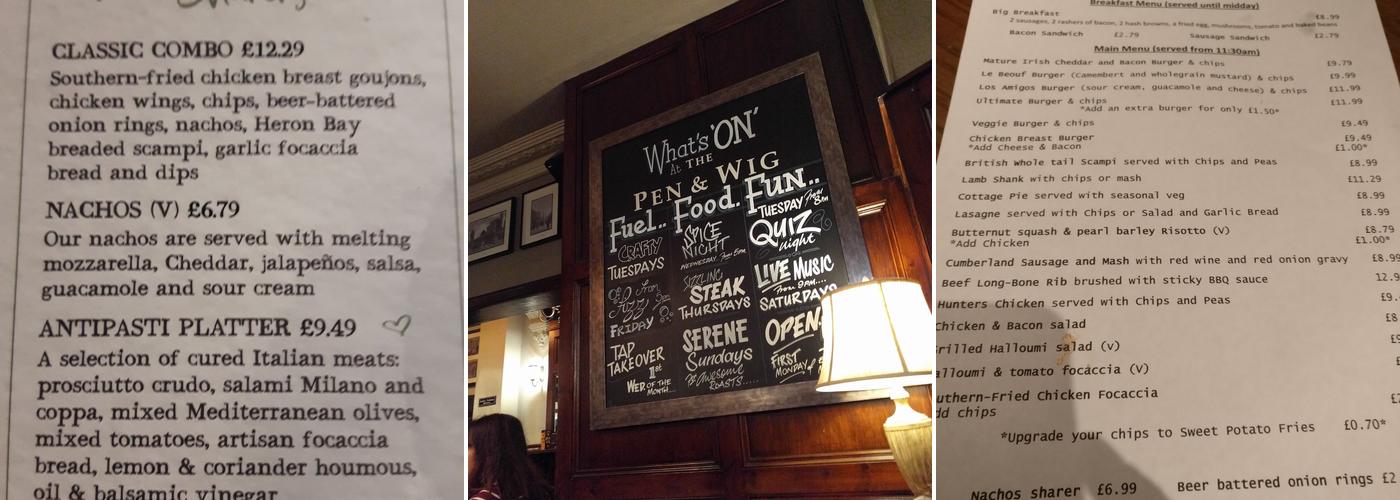 CLASSIC COMBO £12.29
Southern-fried chicken breast goujons,
chicken wings, chips, beer-battered
onion rings, nachos, Heron Bay
breaded scampi, garlic focaccia
bread and dips
NACHOS (V) £6.79
Our nachos are served with melting
mozzarella, Cheddar, jalapeños, salsa,
guacamole and sour cream
ANTIPASTI PLATTER £9.49
A selection of cured Italian meats:
prosciutto crudo, salami Milano and
coppa, mixed Mediterranean olives,
mixed tomatoes, artisan focaccia
bread, lemon & coriander houmous,
oil & balsamic vinegar
What's 'ON'
At THE
PEN & WIG
Fuel.. Food. Fun..
CRAFTY
TUESDAYS
FRIDAY
TAP
TAKEOVER
1st
WED OF THE
MONTH...
SPICE
NIGHT
WEDNESDAY from 5pm
SIZZLING
STEAK
THURSDAYS
SERENE
Sundays
Awesome
ROASTS.....
TUESDAY from 8pm
QUIZ
night
LIVE MUSIC
from 9pm....
SATURDAYS
OPEN
FIRST
MONDAY of
Breakfast Menu (served until midday)
Big Breakfast £8.99
2 sausages, 2 rashers of bacon, 2 hash browns, a fried egg, mushrooms, tomato and baked beans
Bacon Sandwich £2.79 Sausage Sandwich £2.79
Main Menu (served from 11:30am)
Mature Irish Cheddar and Bacon Burger & chips £9.79
Le Beouf Burger (Camembert and wholegrain mustard) & chips £9.99
Los Amigos Burger (sour cream, guacamole and cheese) & chips £11.99
Ultimate Burger & chips £11.99
*Add an extra burger for only £1.50*
Veggie Burger & chips £9.49
Chicken Breast Burger £9.49
*Add Cheese & Bacon £1.00*
British Whole tail Scampi served with Chips and Peas £8.99
Lamb Shank with chips or mash £11.29
Cottage Pie served with seasonal veg £8.99
Lasagne served with Chips or Salad and Garlic Bread £8.99
Butternut squash & pearl barley Risotto (V) £8.79
*Add Chicken £1.00*
Cumberland Sausage and Mash with red wine and red onion gravy £8.99
Beef Long-Bone Rib brushed with sticky BBQ sauce 12.9
Hunters Chicken served with Chips and Peas £9.
Chicken & Bacon salad £8
rilled Halloumi salad (v)
alloumi & tomato focaccia (V)
uthern-Fried Chicken Focaccia
dd chips
*Upgrade your chips to Sweet Potato Fries £0.70*
Nachos sharer £6.99 Beer battered onion rings £2